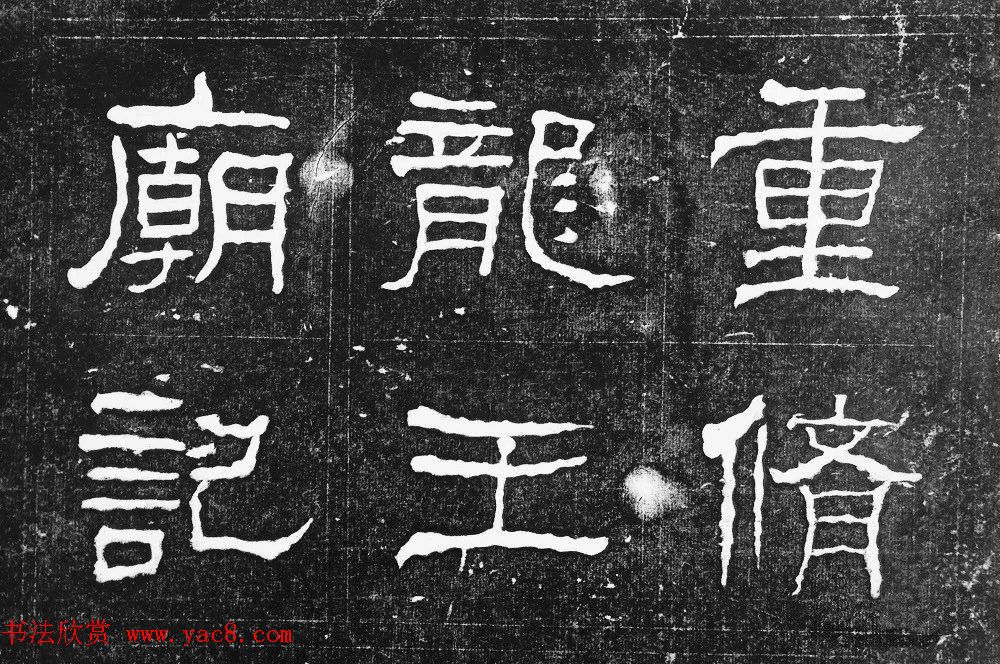 重脩
龍王
廟記
书法欣赏 www.yac8.com